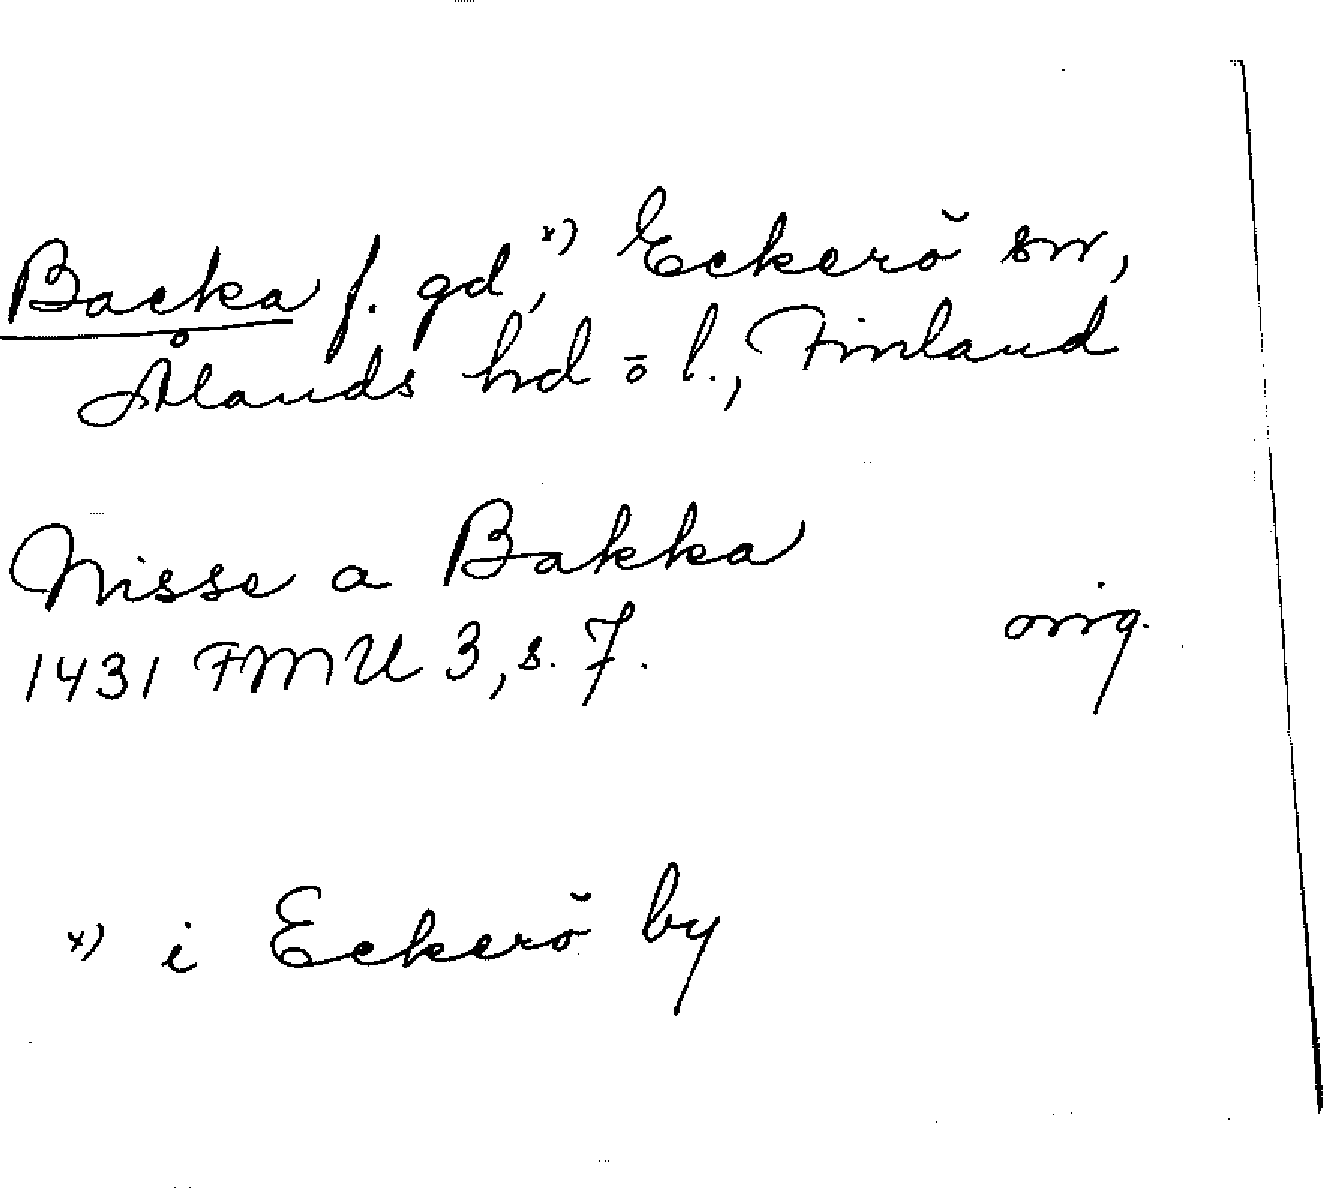 Backa f. gd,x) Eckerö sn,
Ålands hd o l., Finland
Nisse a Bakka
1431 FMU 3, s. 7. orig.
x) i Eckerö by